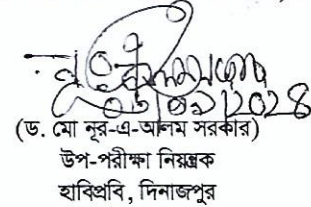 (ড. মো নূর-এ-আলম সরকার)
উপ-পরীক্ষা নিয়ন্ত্রক
হাবিপ্রবি, দিনাজপুর